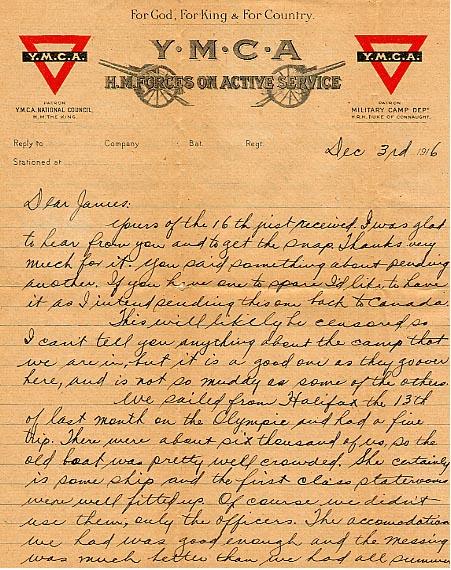 For God, For King & For Country.
Y·M·C·A
H.M. FORCES ON ACTIVE SERVICE
Y.M.C.A.
PATRON
Y.M.C.A. NATIONAL COUNCIL.
H.M. THE KING.
Y.M.C.A.
PATRON
MILITARY CAMP DEPT
H.R.H. DUKE OF CONNAUGHT.
Reply to Company Bat. Regt.
Stationed at
Dec 3rd 1916
Dear James:
Yours of the 16th just received. I was glad
to hear from you and to get the snap. Thanks very
much for it. You said something about sending
another. If you have one to spare I'd like to have
it as I intend sending this one back to Canada.
This will likely be censored so
I can't tell you anything about the camp that
we are in, but it is a good one as they go over
here, and is not so muddy as some of the others.
We sailed from Halifax the 13th
of last month on the Olympic and had a fine
trip. There were about six thousand of us, so the
old boat was pretty well crowded. She certainly
is some ship and the first class staterooms
were well fitted up. Of course we didn't
use them, only the officers. The accomodation
we had was good enough and the messing
was much better than we had all summer